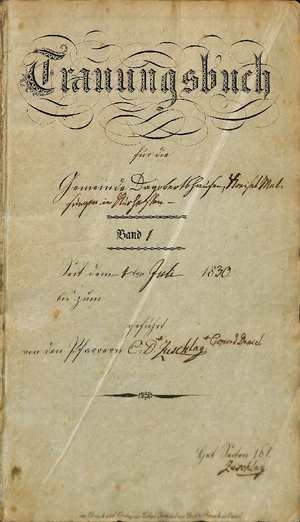 Trauungsbuch
für die
Gemeinde Dagobertshausen, Kreises Mel-
sungen in Kurhessen
Band 1
Seit dem 1ten Juli 1830
bis zum
geführt
von den Pfarrern C. D. Zuschlag. Conrad Daniel
Hat Seiten 161.
Zuschlag